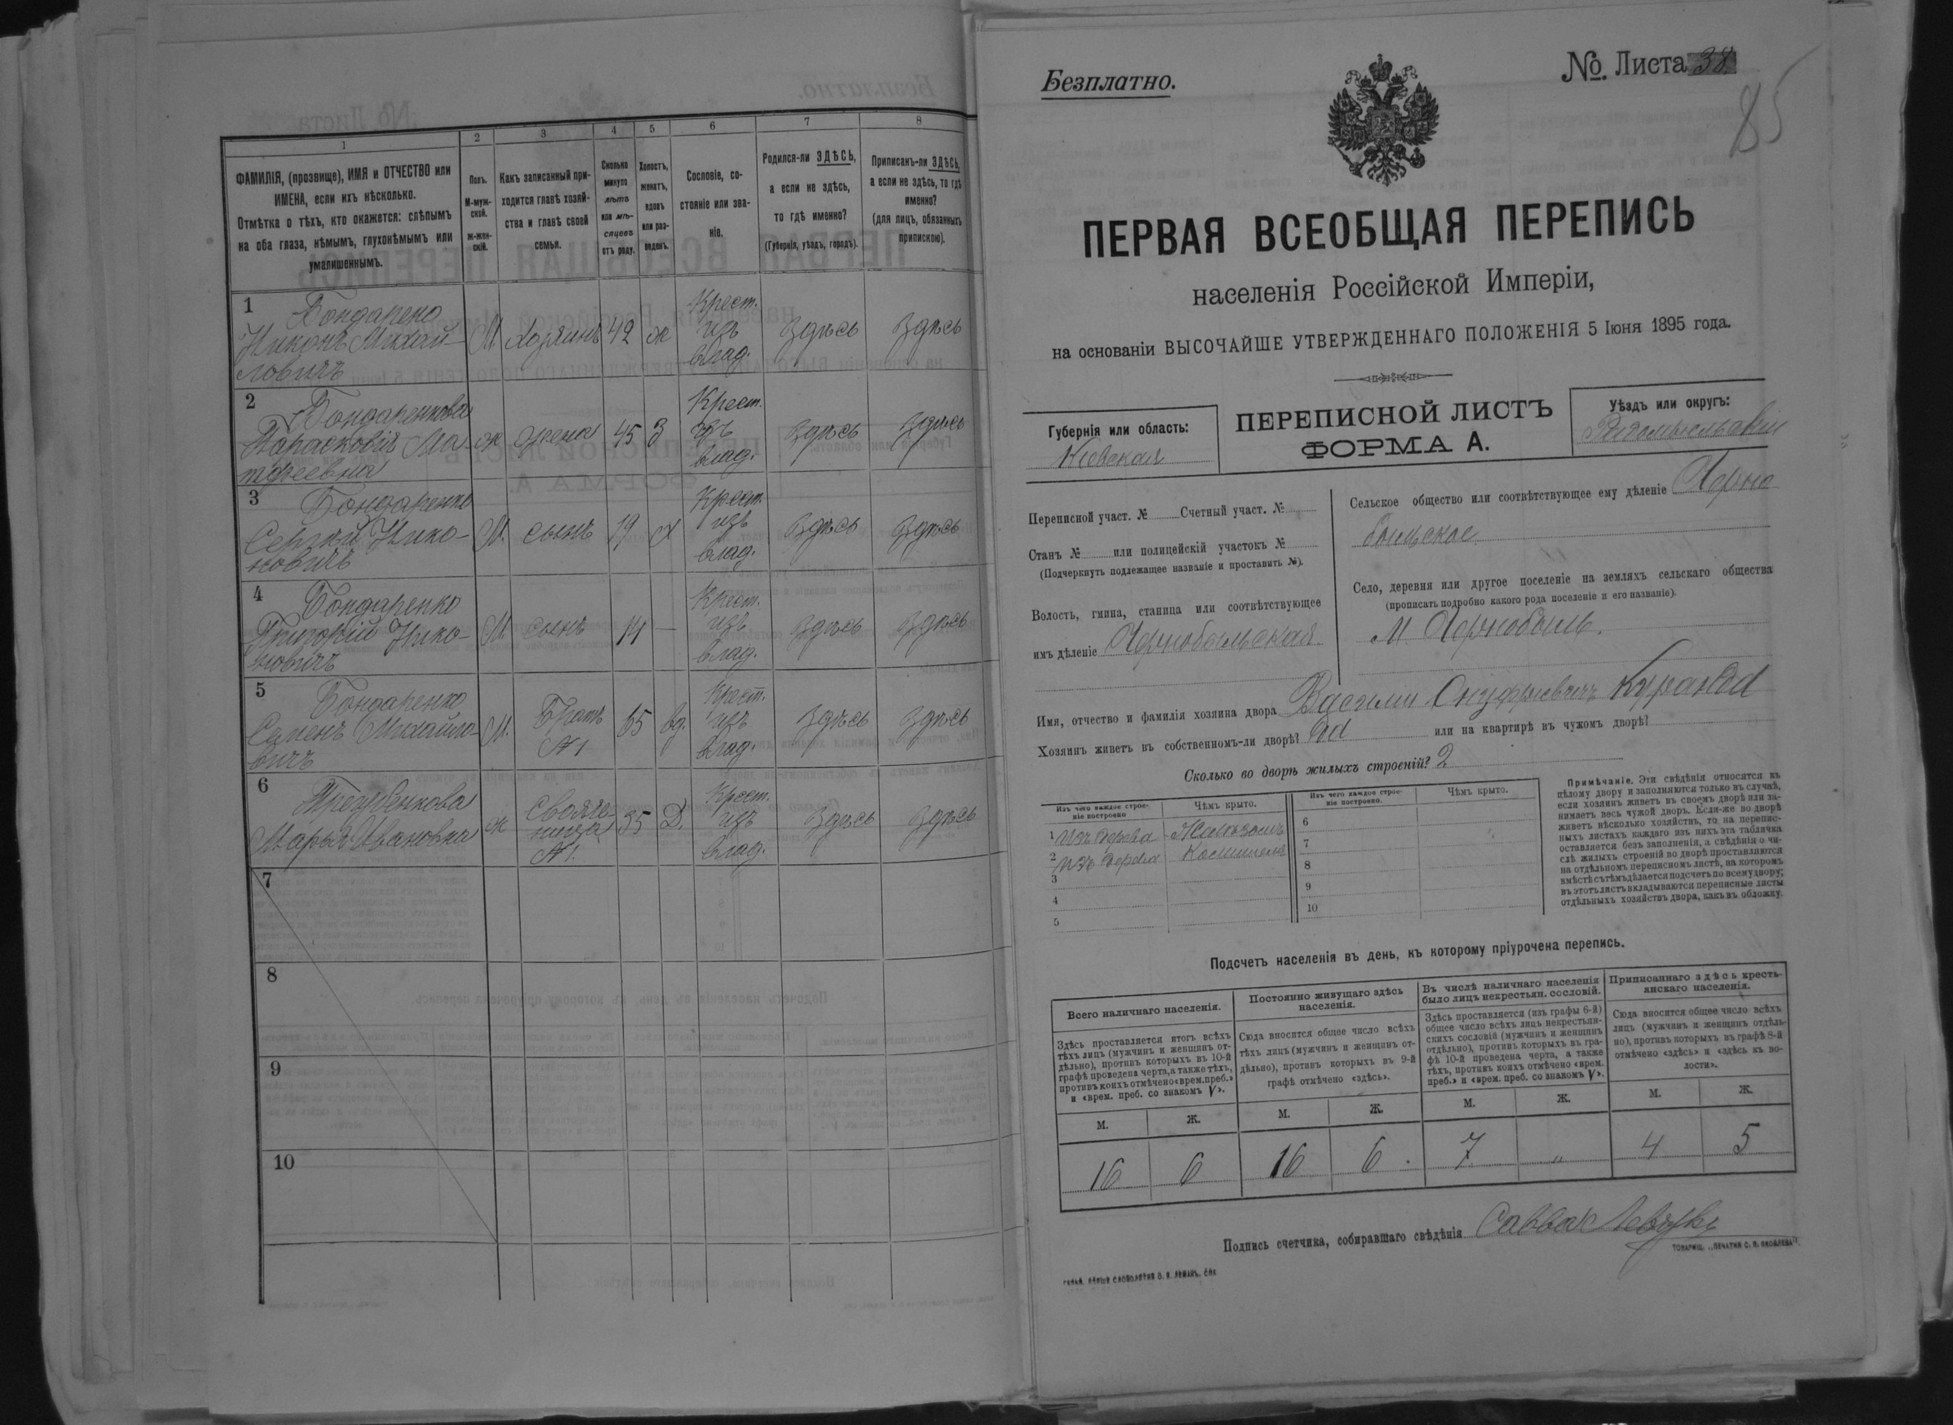 1
ФАМИЛІЯ, (прозвище), ИМЯ и ОТЧЕСТВО или
ИМЕНА, если ихъ нѣсколько.
Отмѣтка о тѣхъ, кто окажется: слѣпымъ
на оба глаза, нѣмымъ, глухонѣмымъ или
умалишеннымъ.
2
Полъ.
М-муж-
ской.
ж-жен-
скій.
3
Какъ записанный при-
ходится главѣ хозяй-
ства и главѣ своей
семьи.
4
Сколько
минуло
лѣтъ
или мѣ-
сяцевъ
отъ роду.
5
Холостъ,
женатъ,
вдовъ
или раз-
веденъ.
6
Сословіе, со-
стояніе или зва-
ніе.
7
Родился-ли ЗДѢСЬ,
а если не здѣсь,
то гдѣ именно?
(Губернія, уѣздъ, городъ).
8
Приписанъ-ли ЗДѢСЬ,
а если не здѣсь, то гдѣ
именно?
(для лицъ, обязанныхъ
припискою).
1
Бондарено
Никонъ Михай-
ловичъ
М
хозяинъ
42
ж
Крест.
изъ
влад.
здѣсь
здѣсь
2
Бондаренкова
Парасковія Ма
тфеевна
ж
жена
45
З
Крест.
изъ
влад.
здѣсь
здѣсь
3
Бондаренко
Сергѣй Нико-
новичъ
М.
сынъ
19
х
Крест.
изъ
влад.
здѣсь
здѣсь
4
Бондаренко
Григорій Нико-
новичъ
М
сынъ
14
—
Крест.
изъ
влад.
здѣсь
здѣсь
5
Бондаренко
Семенъ Михайло
вичъ
М.
Братъ
№ 1
65
вд.
Крест.
изъ
влад.
здѣсь
здѣсь
6
Марья Ивановна
ж
Своячи
ница
№ 1.
35
Д.
Крест.
изъ
влад.
здѣсь
здѣсь
7
8
9
10
Безплатно.
№. Листа 38
85
ПЕРВАЯ ВСЕОБЩАЯ ПЕРЕПИСЬ
населенія Россійской Имперіи,
на основаніи ВЫСОЧАЙШЕ УТВЕРЖДЕННАГО ПОЛОЖЕНІЯ 5 Іюня 1895 года.
Губернія или область:
Кіевская
ПЕРЕПИСНОЙ ЛИСТЪ
ФОРМА А.
Уѣздъ или округъ:
Радомысльскій
Переписной участ. № Счетный участ. №
Станъ № или полицейскій участокъ №
(Подчеркнуть подлежащее названіе и проставить №).
Волость, гмина, станица или соотвѣтствующее
имъ дѣленіе Чернобыльская
Сельское общество или соотвѣтствующее ему дѣленіе Черно
быльское
Село, деревня или другое поселеніе на земляхъ сельскаго общества
(прописать подробно какого рода поселеніе и его названіе).
М. Чернобыль.
Имя, отчество и фамилія хозяина двора Василий Онуфріевичъ
Хозяинъ живетъ въ собственномъ-ли дворѣ? или на квартирѣ въ чужомъ дворѣ?
Сколько во дворѣ жилыхъ строеній? 2
Изъ чего каждое строе-
ніе построено
Чѣмъ крыто.
Изъ чего каждое строе-
ніе построено.
Чѣмъ крыто.
1 Изъ дерева
2 Изъ дерева
3
4
5
6
7
8
9
10
Примѣчаніе. Эти свѣдѣнія относятся къ
цѣлому двору и заполняются только въ случаѣ,
если хозяинъ живетъ въ своемъ дворѣ или за-
нимаетъ весь чужой дворъ. Если-же во дворѣ
живетъ нѣсколько хозяйствъ, то на перепис-
ныхъ листахъ каждаго изъ нихъ эта табличка
оставляется безъ заполненія, а свѣдѣнія о чи-
слѣ жилыхъ строеній во дворѣ проставляются
на отдѣльномъ переписномъ листѣ, на которомъ
вмѣстѣ съ тѣмъ дѣлается подсчетъ по всему двору;
въ этотъ листъ вкладываются переписные листы
отдѣльныхъ хозяйствъ двора, какъ въ обложку.
Подсчетъ населенія въ день, къ которому пріурочена перепись.
Всего наличнаго населенія.
Здѣсь проставляется итогъ всѣхъ
тѣхъ лицъ (мужчинъ и женщинъ от-
дѣльно), противъ которыхъ въ 10-й
графѣ проведена черта, а также тѣхъ,
противъ коихъ отмѣчено «врем. преб.»
и «врем. преб. со знакомъ V».
М.
Ж.
16
6
Постоянно живущаго здѣсь
населенія.
Сюда вносится общее число всѣхъ
тѣхъ лицъ (мужчинъ и женщинъ от-
дѣльно), противъ которыхъ въ 9-й
графѣ отмѣчено «здѣсь».
М.
Ж.
16
6
Въ числѣ наличнаго населенія
было лицъ некрестьян. сословій.
Здѣсь проставляется (изъ графы 6-й)
общее число всѣхъ лицъ некрестьян-
скихъ сословій (мужчинъ и женщинъ
отдѣльно), противъ которыхъ въ гра-
фѣ 10-й проведена черта, а также
тѣхъ, противъ коихъ отмѣчено «врем.
преб.» и «врем. преб. со знакомъ V».
М.
Ж.
7
„
Приписаннаго здѣсь кресть-
янскаго населенія.
Сюда вносится общее число всѣхъ
лицъ (мужчинъ и женщинъ отдѣль-
но), противъ которыхъ въ графѣ 8-й
отмѣчено «здѣсь» и «здѣсь къ во-
лости».
М.
Ж.
4
5
Подпись счетчика, собиравшаго свѣдѣнія Савва